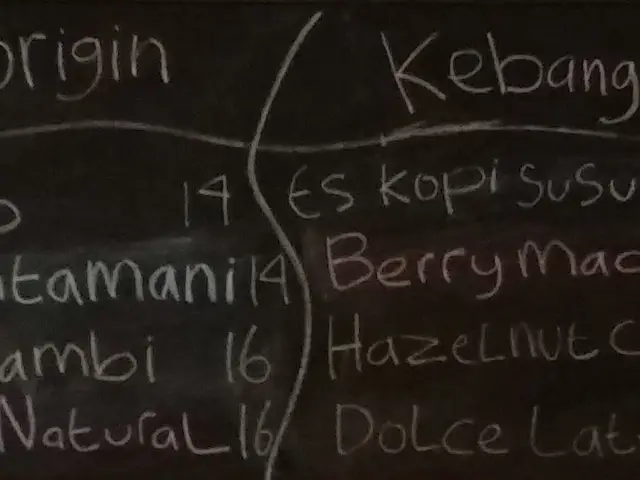 origin
14
ntamani 14
ambi 16
Natural 16
Kebang
Es kopi susu
Berry mac
Hazelnut C
Dolce Lat